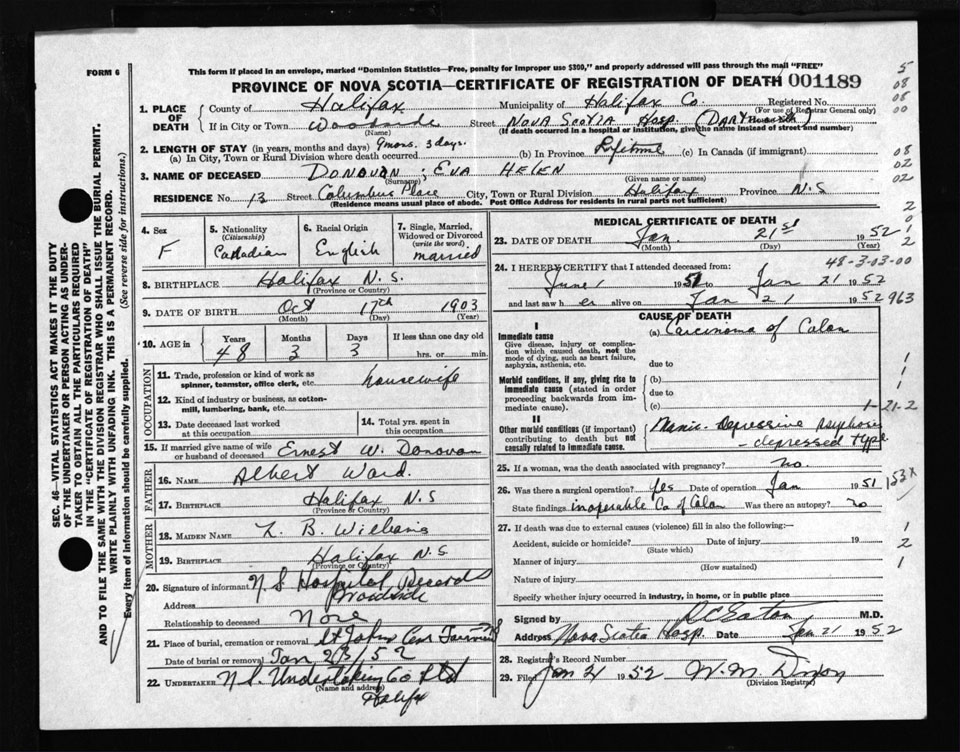 FORM 6
This form if placed in an envelope, marked "Dominion Statistics—Free, penalty for improper use $300," and properly addressed will pass through the mail "FREE"
PROVINCE OF NOVA SCOTIA—CERTIFICATE OF REGISTRATION OF DEATH 001189
1. PLACE OF DEATH
County of Halifax Municipality of Halifax Co. Registered No.
(For use of Registrar General only)
If in City or Town Woodside Street Nova Scotia Hosp. (Dartmouth)
(Name) (If death occurred in a hospital or institution, give the name instead of street and number)
2. LENGTH OF STAY (in years, months and days) 9 mons. 3 days.
(a) In City, Town or Rural Division where death occurred (b) In Province Lifetime (c) In Canada (if immigrant)
3. NAME OF DECEASED DONOVAN ; EVA HELEN
(Surname) (Given name or names)
RESIDENCE No. 13 Street Columbus Place City, Town or Rural Division Halifax Province N.S
(Residence means usual place of abode. Post Office Address for residents in rural parts not sufficient)
4. Sex F
5. Nationality (Citizenship) Canadian
6. Racial Origin English
7. Single, Married, Widowed or Divorced (write the word) married
8. BIRTHPLACE Halifax N.S.
(Province or Country)
9. DATE OF BIRTH Oct 17th 1903
(Month) (Day) (Year)
10. AGE in Years Months Days If less than one day old
48 3 3 hrs. or min.
OCCUPATION
11. Trade, profession or kind of work as spinner, teamster, office clerk, etc. housewife
12. Kind of industry or business, as cotton-mill, lumbering, bank, etc.
13. Date deceased last worked at this occupation
14. Total yrs. spent in this occupation
15. If married give name of wife or husband of deceased Ernest W. Donovan
FATHER
16. NAME Albert Ward.
17. BIRTHPLACE Halifax N.S
(Province or Country)
MOTHER
18. MAIDEN NAME L. B. Williams
19. BIRTHPLACE Halifax N.S
(Province or Country)
20. Signature of informant N.S Hospital Records
Address Woodside
Relationship to deceased None
21. Place of burial, cremation or removal St Johns Cem Fairview
Date of burial or removal Jan 23/52
22. UNDERTAKER N.S. Undertaking Co Ltd
(Name and address)
Halifx
MEDICAL CERTIFICATE OF DEATH
23. DATE OF DEATH Jan. 21st 1952
(Month) (Day) (Year)
24. I HEREBY CERTIFY that I attended deceased from:
48-3-03-00
June 1 1951 to Jan 21 1952
and last saw h er alive on Jan 21 1952 963
CAUSE OF DEATH
I
Immediate cause
Give disease, injury or complication which caused death, not the mode of dying, such as heart failure, asphyxia, asthenia, etc.
(a) Carcinoma of Colon
due to
Morbid conditions, if any, giving rise to immediate cause (stated in order proceeding backwards from immediate cause).
(b)
due to
(c)
1-21-2
II
Other morbid conditions (if important) contributing to death but not causally related to immediate cause.
Manic-Depressive Psychosis
- depressed type
25. If a woman, was the death associated with pregnancy? no.
26. Was there a surgical operation? Yes Date of operation Jan 1951 153x
State findings inoperable Ca of Colon Was there an autopsy? no
27. If death was due to external causes (violence) fill in also the following:—
Accident, suicide or homicide? Date of injury 19
(State which)
Manner of injury
(How sustained)
Nature of injury
Specify whether injury occurred in industry, in home, or in public place
Signed by R C Eaton M.D.
Address Nova Scotia Hosp. Date Jan 21 1952
28. Registrar's Record Number
29. Filed Jan 21 1952 W. M. Dixon
(Division Registrar)
SEC. 46—VITAL STATISTICS ACT MAKES IT THE DUTY OF THE UNDERTAKER OR PERSON ACTING AS UNDERTAKER TO OBTAIN ALL THE PARTICULARS REQUIRED IN THE "CERTIFICATE OF REGISTRATION OF DEATH" AND TO FILE THE SAME WITH THE DIVISION REGISTRAR WHO SHALL ISSUE THE BURIAL PERMIT.
WRITE PLAINLY WITH UNFADING INK. THIS IS A PERMANENT RECORD.
Every item of information should be carefully supplied. (See reverse side for instructions.)
5
08
08
00
08
02
02
2
0
1
2
1
1
1
1
2
1